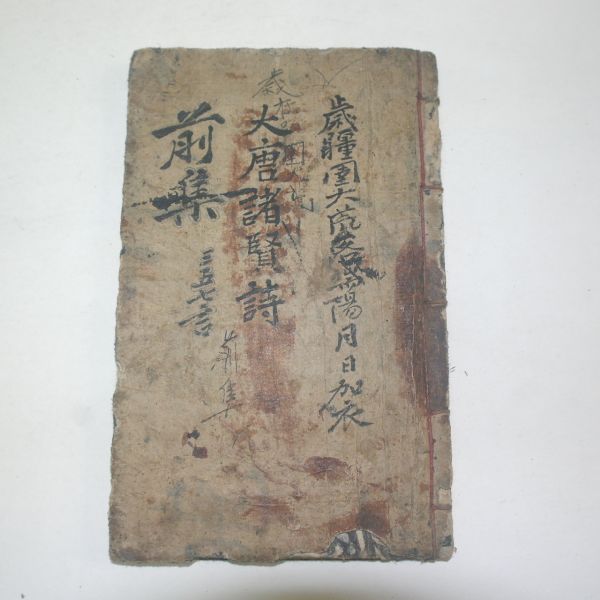 歲疆圉大荒落陽月日加衣
大唐諸賢詩
前集
三五七言
前集